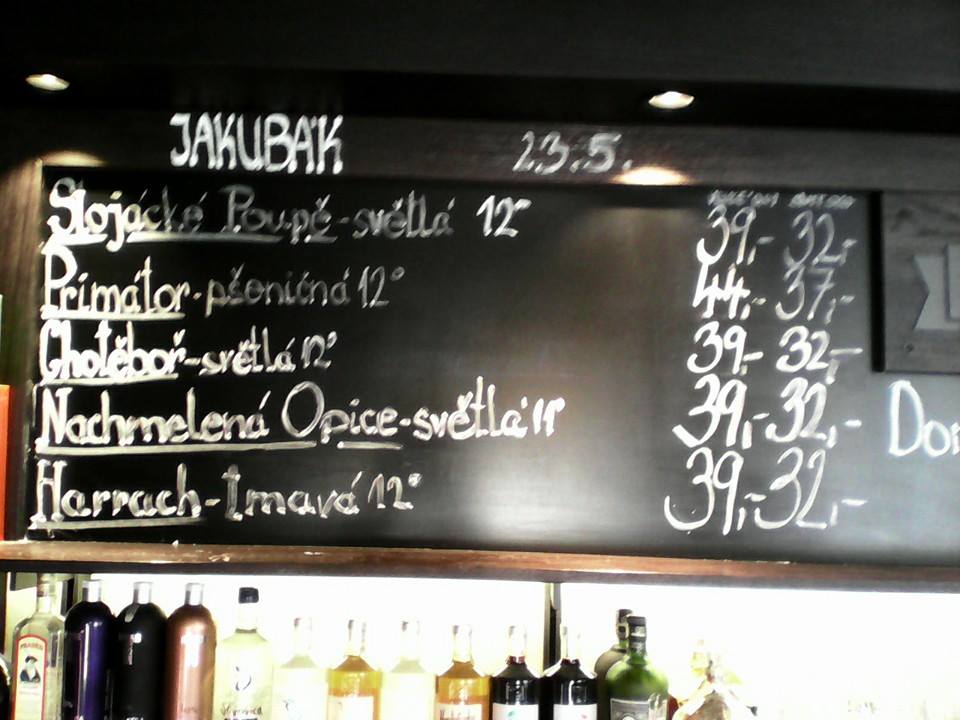 JAKUBÁK 23.5.
Slojácké Poupě-světlá 12° 39,- 32,-
Primátor-pšeničná 12° 44,- 37,-
Chotěboř-světlá 12° 39,- 32,-
Nachmelená Opice-světlá 11° 39,- 32,-
Harrach-tmavá 12° 39,- 32,-